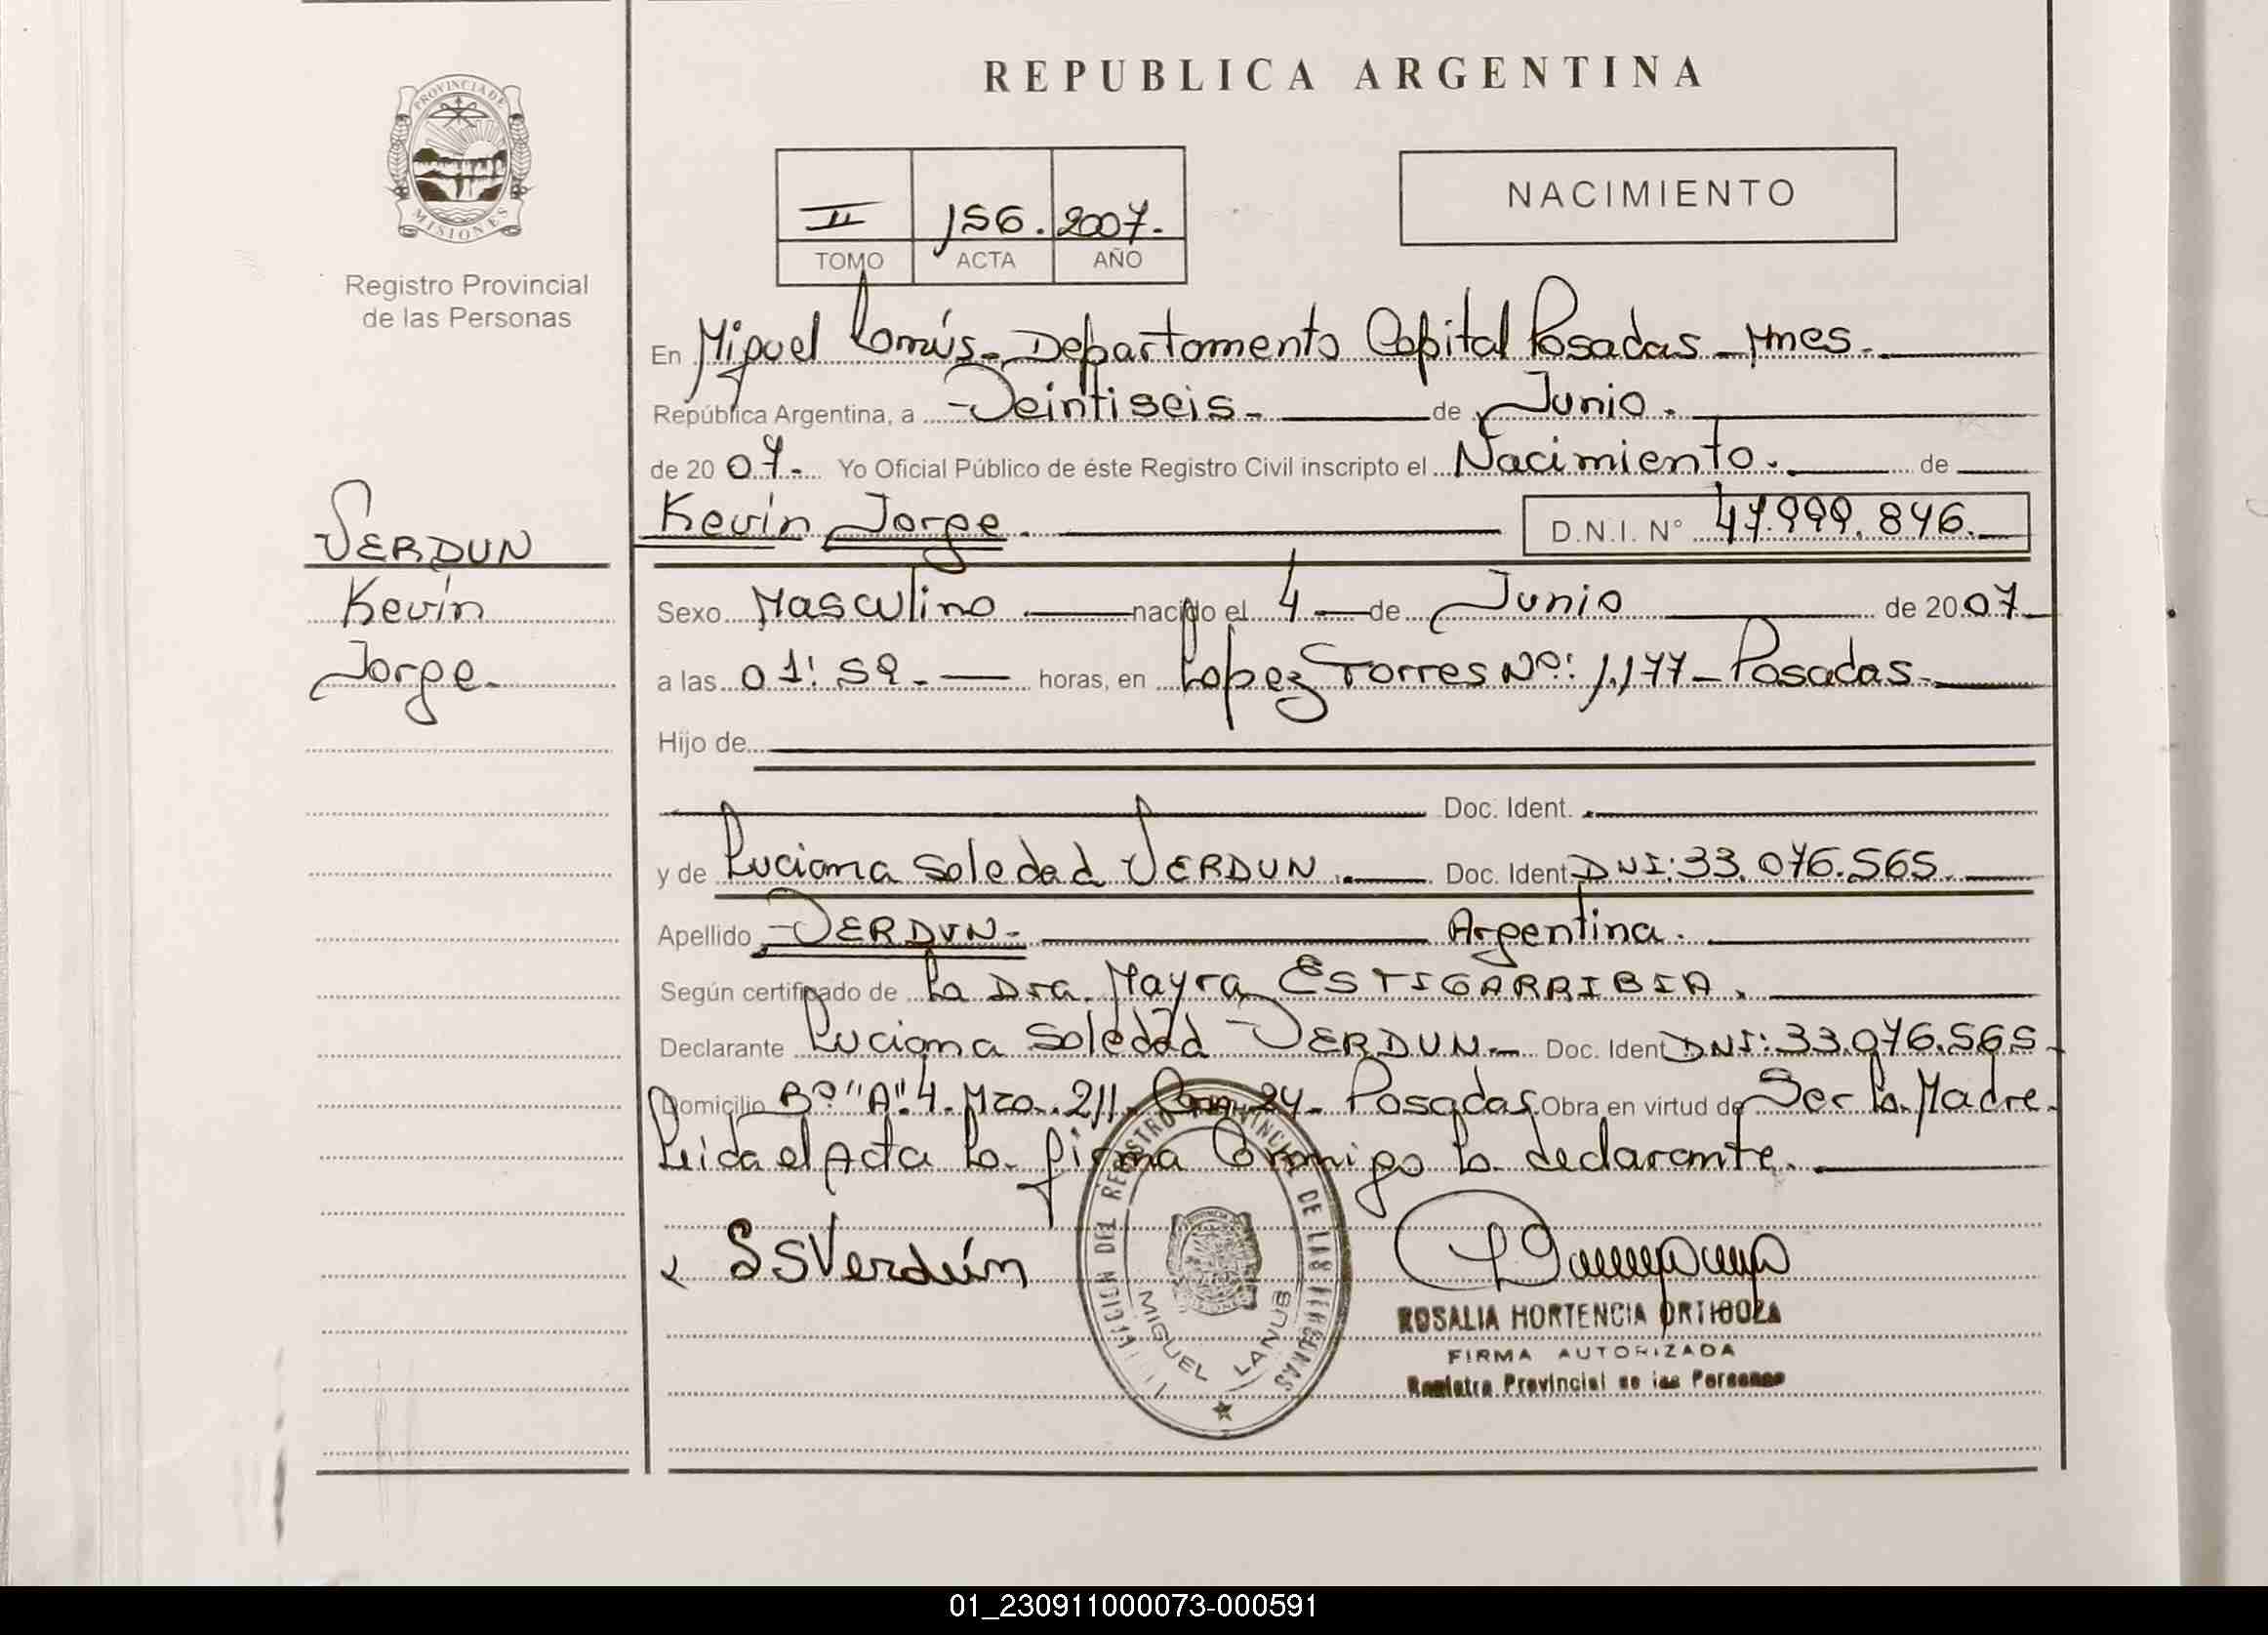 REPUBLICA ARGENTINA
PROVINCIA DE
MISIONES
Registro Provincial
de las Personas
II 156. 2007.
TOMO ACTA AÑO
NACIMIENTO
En Miguel Lanús - Departamento Capital Posadas - Mnes.
República Argentina, a Veintiseis - de Junio.
de 20 07. Yo Oficial Público de éste Registro Civil inscripto el Nacimiento. de
VERDUN
Kevin
Jorge.
Kevin Jorge. D.N.I. Nº 47.999.846.
Sexo Masculino nacido el 4 de Junio de 2007
a las 01:52. horas, en Lopez Torres Nº: 1.177 - Posadas.
Hijo de
Doc. Ident.
y de Luciana Soledad VERDUN. Doc. Ident DNI: 33.076.565.
Apellido VERDUN - Argentina.
Según certificado de La Dra. Mayra ESTIGARRIBIA.
Declarante Luciana Soledad VERDUN - Doc. Ident DNI: 33.076.565
Domicilio Bº "A" 4. Mza. 211 - 24 - Posadas Obra en virtud de Ser la Madre.
Leida el Acta la firma Conmigo la declarante.
SSVerdún
REGISTRO PROVINCIAL DE LAS PERSONAS
MIGUEL LANUS
ROSALIA HORTENCIA ORTIGOZA
FIRMA AUTORIZADA
Registro Provincial de las Personas
01_230911000073-000591